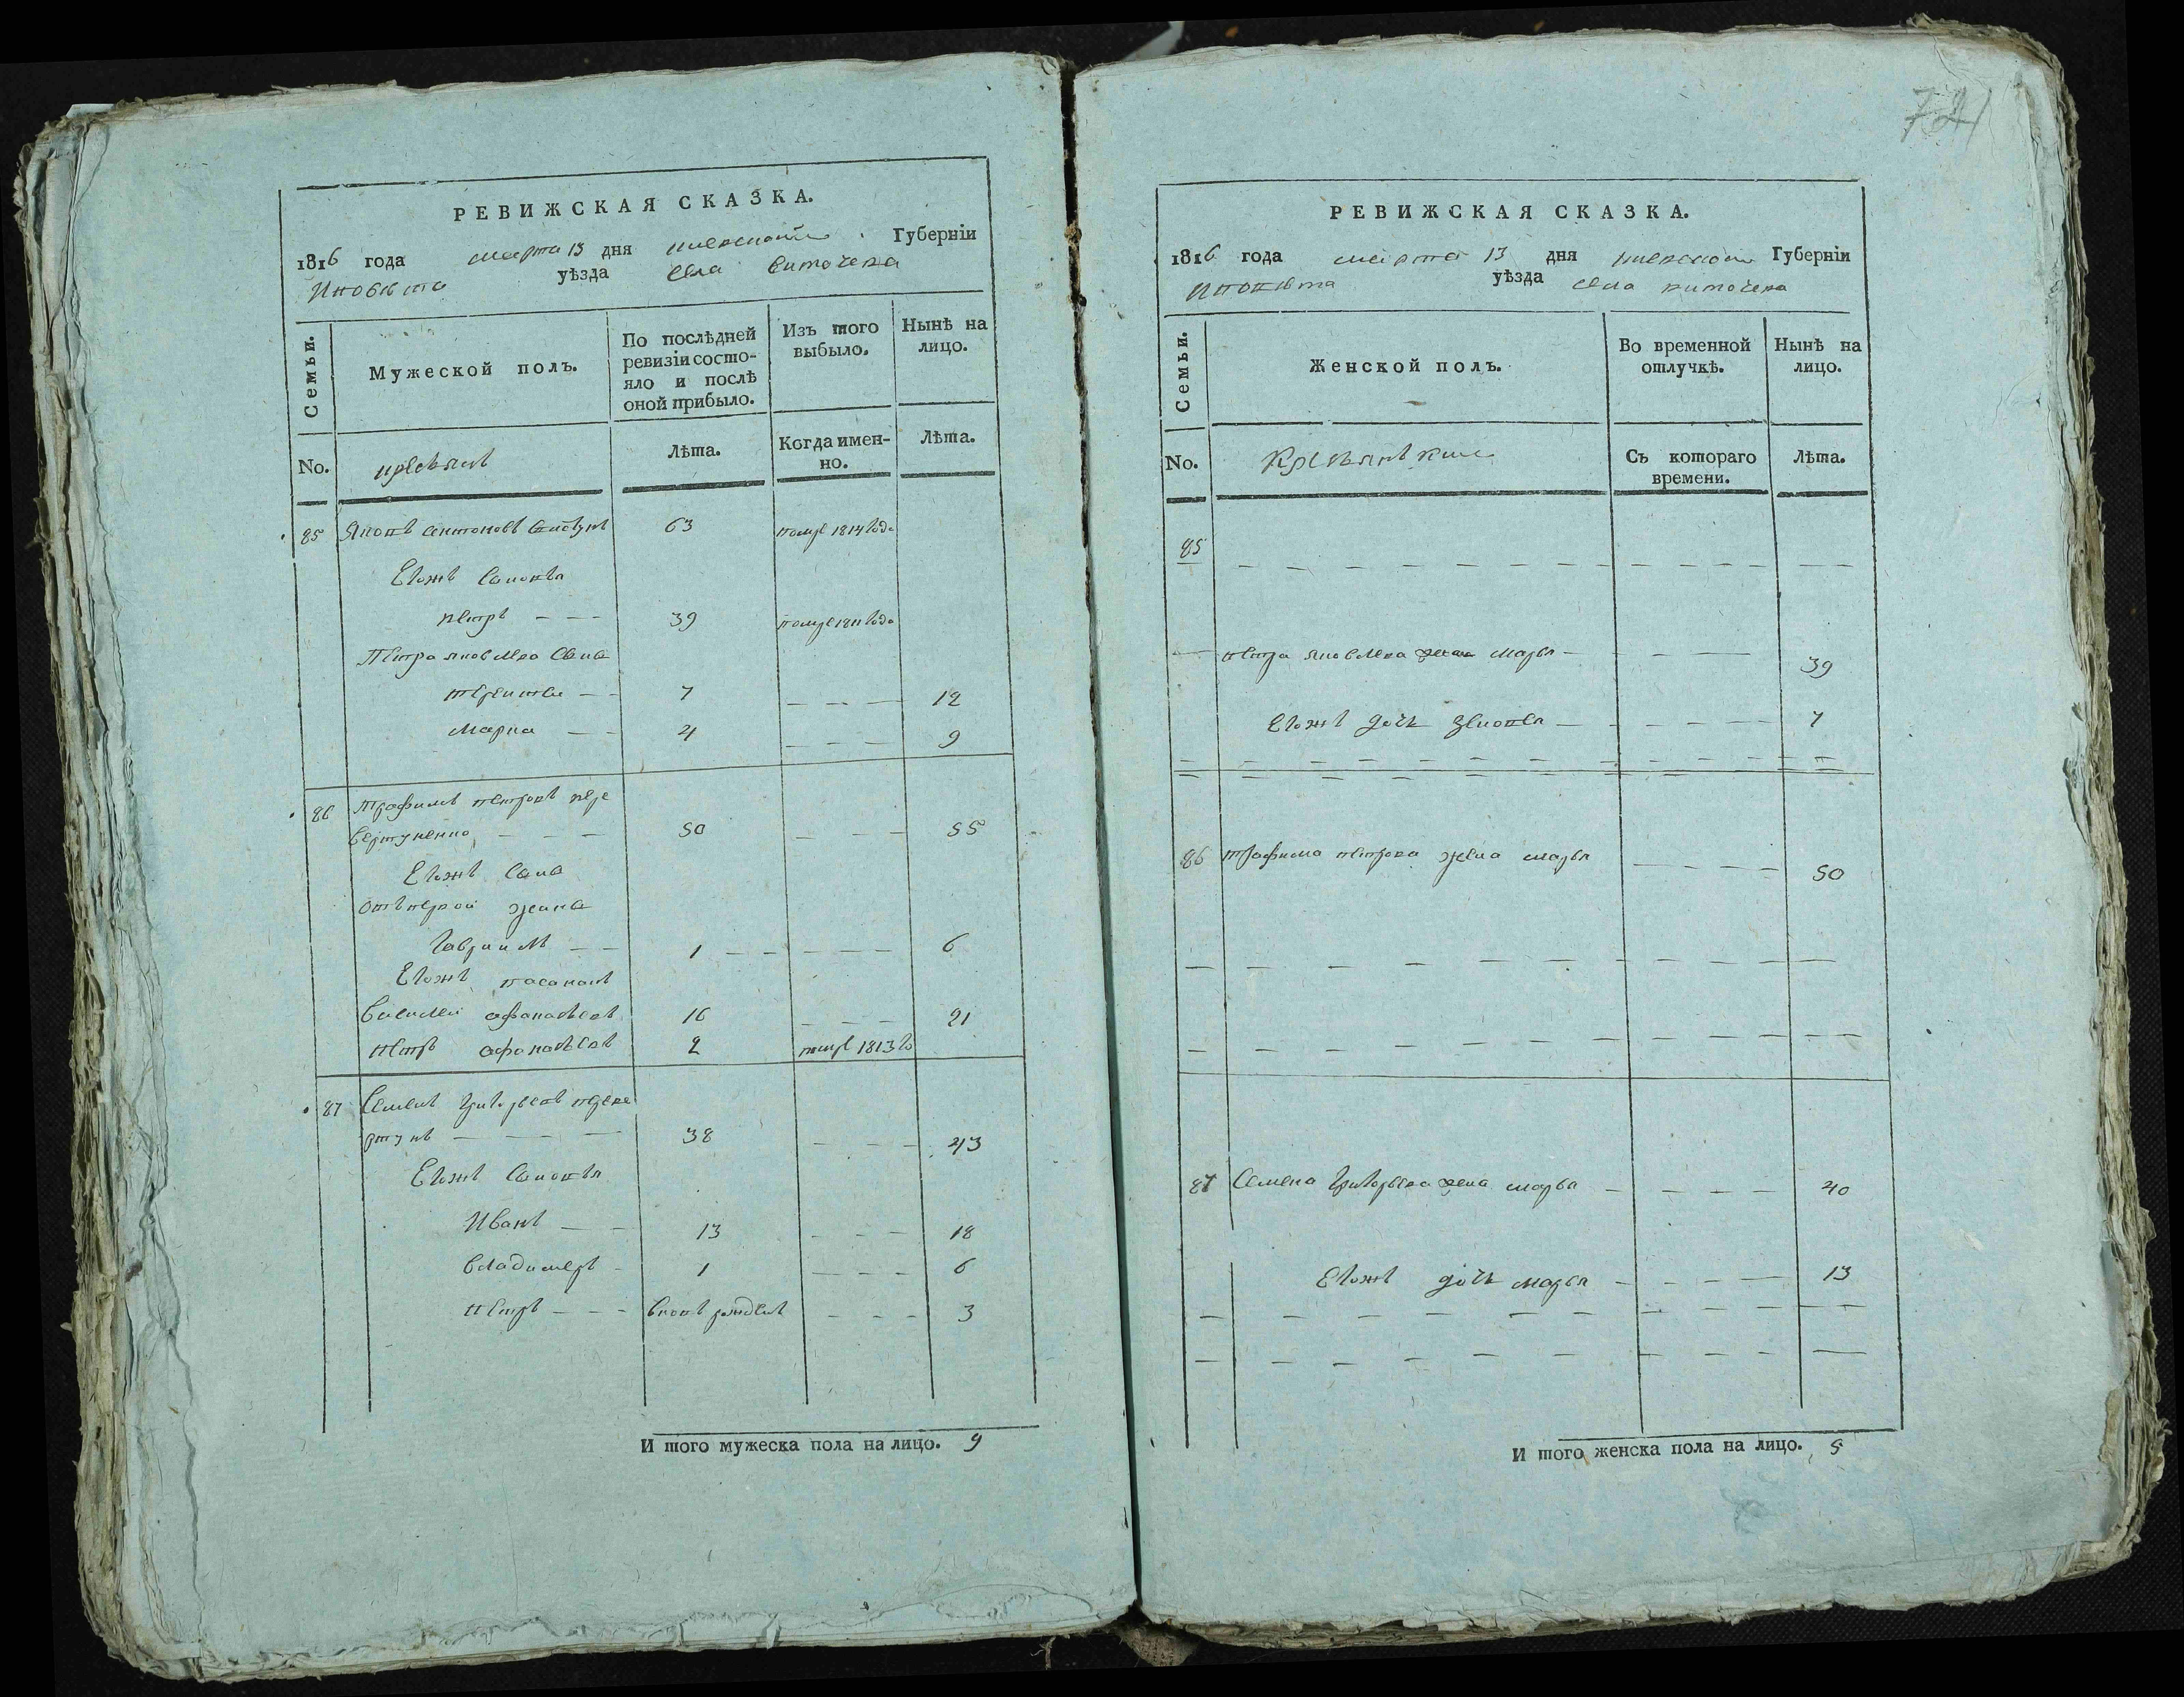 721
РЕВИЖСКАЯ СКАЗКА.
1816 года марта 13 дня Киевской Губерніи
уѣзда села Витачева
Семьи. Мужеской полъ. По послѣдней ревизіи состояло и послѣ оной прибыло. Изъ того выбыло. Нынѣ на лицо.
No. Лѣта. Когда именно. Лѣта.
85 Яковъ Антоновъ 63 помре 1814 года
Егожъ сыновья
Петръ — — — 39 помре 1811 года
Петра Яковлева сыны
Терентей — — 7 — — — 12
Марка — — 4 — — — 9
86 Трофимъ Петровъ Пере
вертуненко — — — 50 — — — 55
Егожъ сынъ
отъ первой жины
Гавриилъ — — 1 — — — — — 6
Егожъ пасанки
Василей Афанасьевъ 16 — — — 21
Петръ Афанасьевъ 2 помре 1813 го
87 Семенъ Григорьевъ Переве
ртунъ — — — 38 — — — 43
Егожъ сыновья
Иванъ — — 13 — — — 18
Владимеръ — 1 — — — — 6
Петръ — — — вновь рожденъ — — — 3
И того мужеска пола на лицо. 9
РЕВИЖСКАЯ СКАЗКА.
1816 года марта 13 дня Киевской Губерніи
уѣзда села Витачева
Семьи. Женской полъ. Во временной отлучкѣ. Нынѣ на лицо.
No. Съ котораго времени. Лѣта.
85
Петра Яковлева жена Марья — — — 39
Егожъ дочь Зеновья — — — — — 7
86 Трофима Петрова жена Марья — — — — 50
87 Семена Григорьева жена Марья — — — — — 40
Егожъ дочь Марья — — — — 13
И того женска пола на лицо. 5